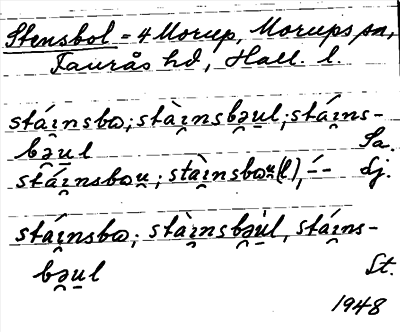 Stensbol = 4 Morup, Morups sn,
Faurås hd, Hall. l.
stái̯nsbɷ; stài̯nsbə̯u̱l; stái̯ns-
bə̯u̱l Sa.
stái̯nsbɷu̯; stài̯nsbɷu̯(l), -́- Lj.
stái̯nsbɷ; stài̯nsbə̯ùl, stái̯ns-
bə̯u̱l St.
1948